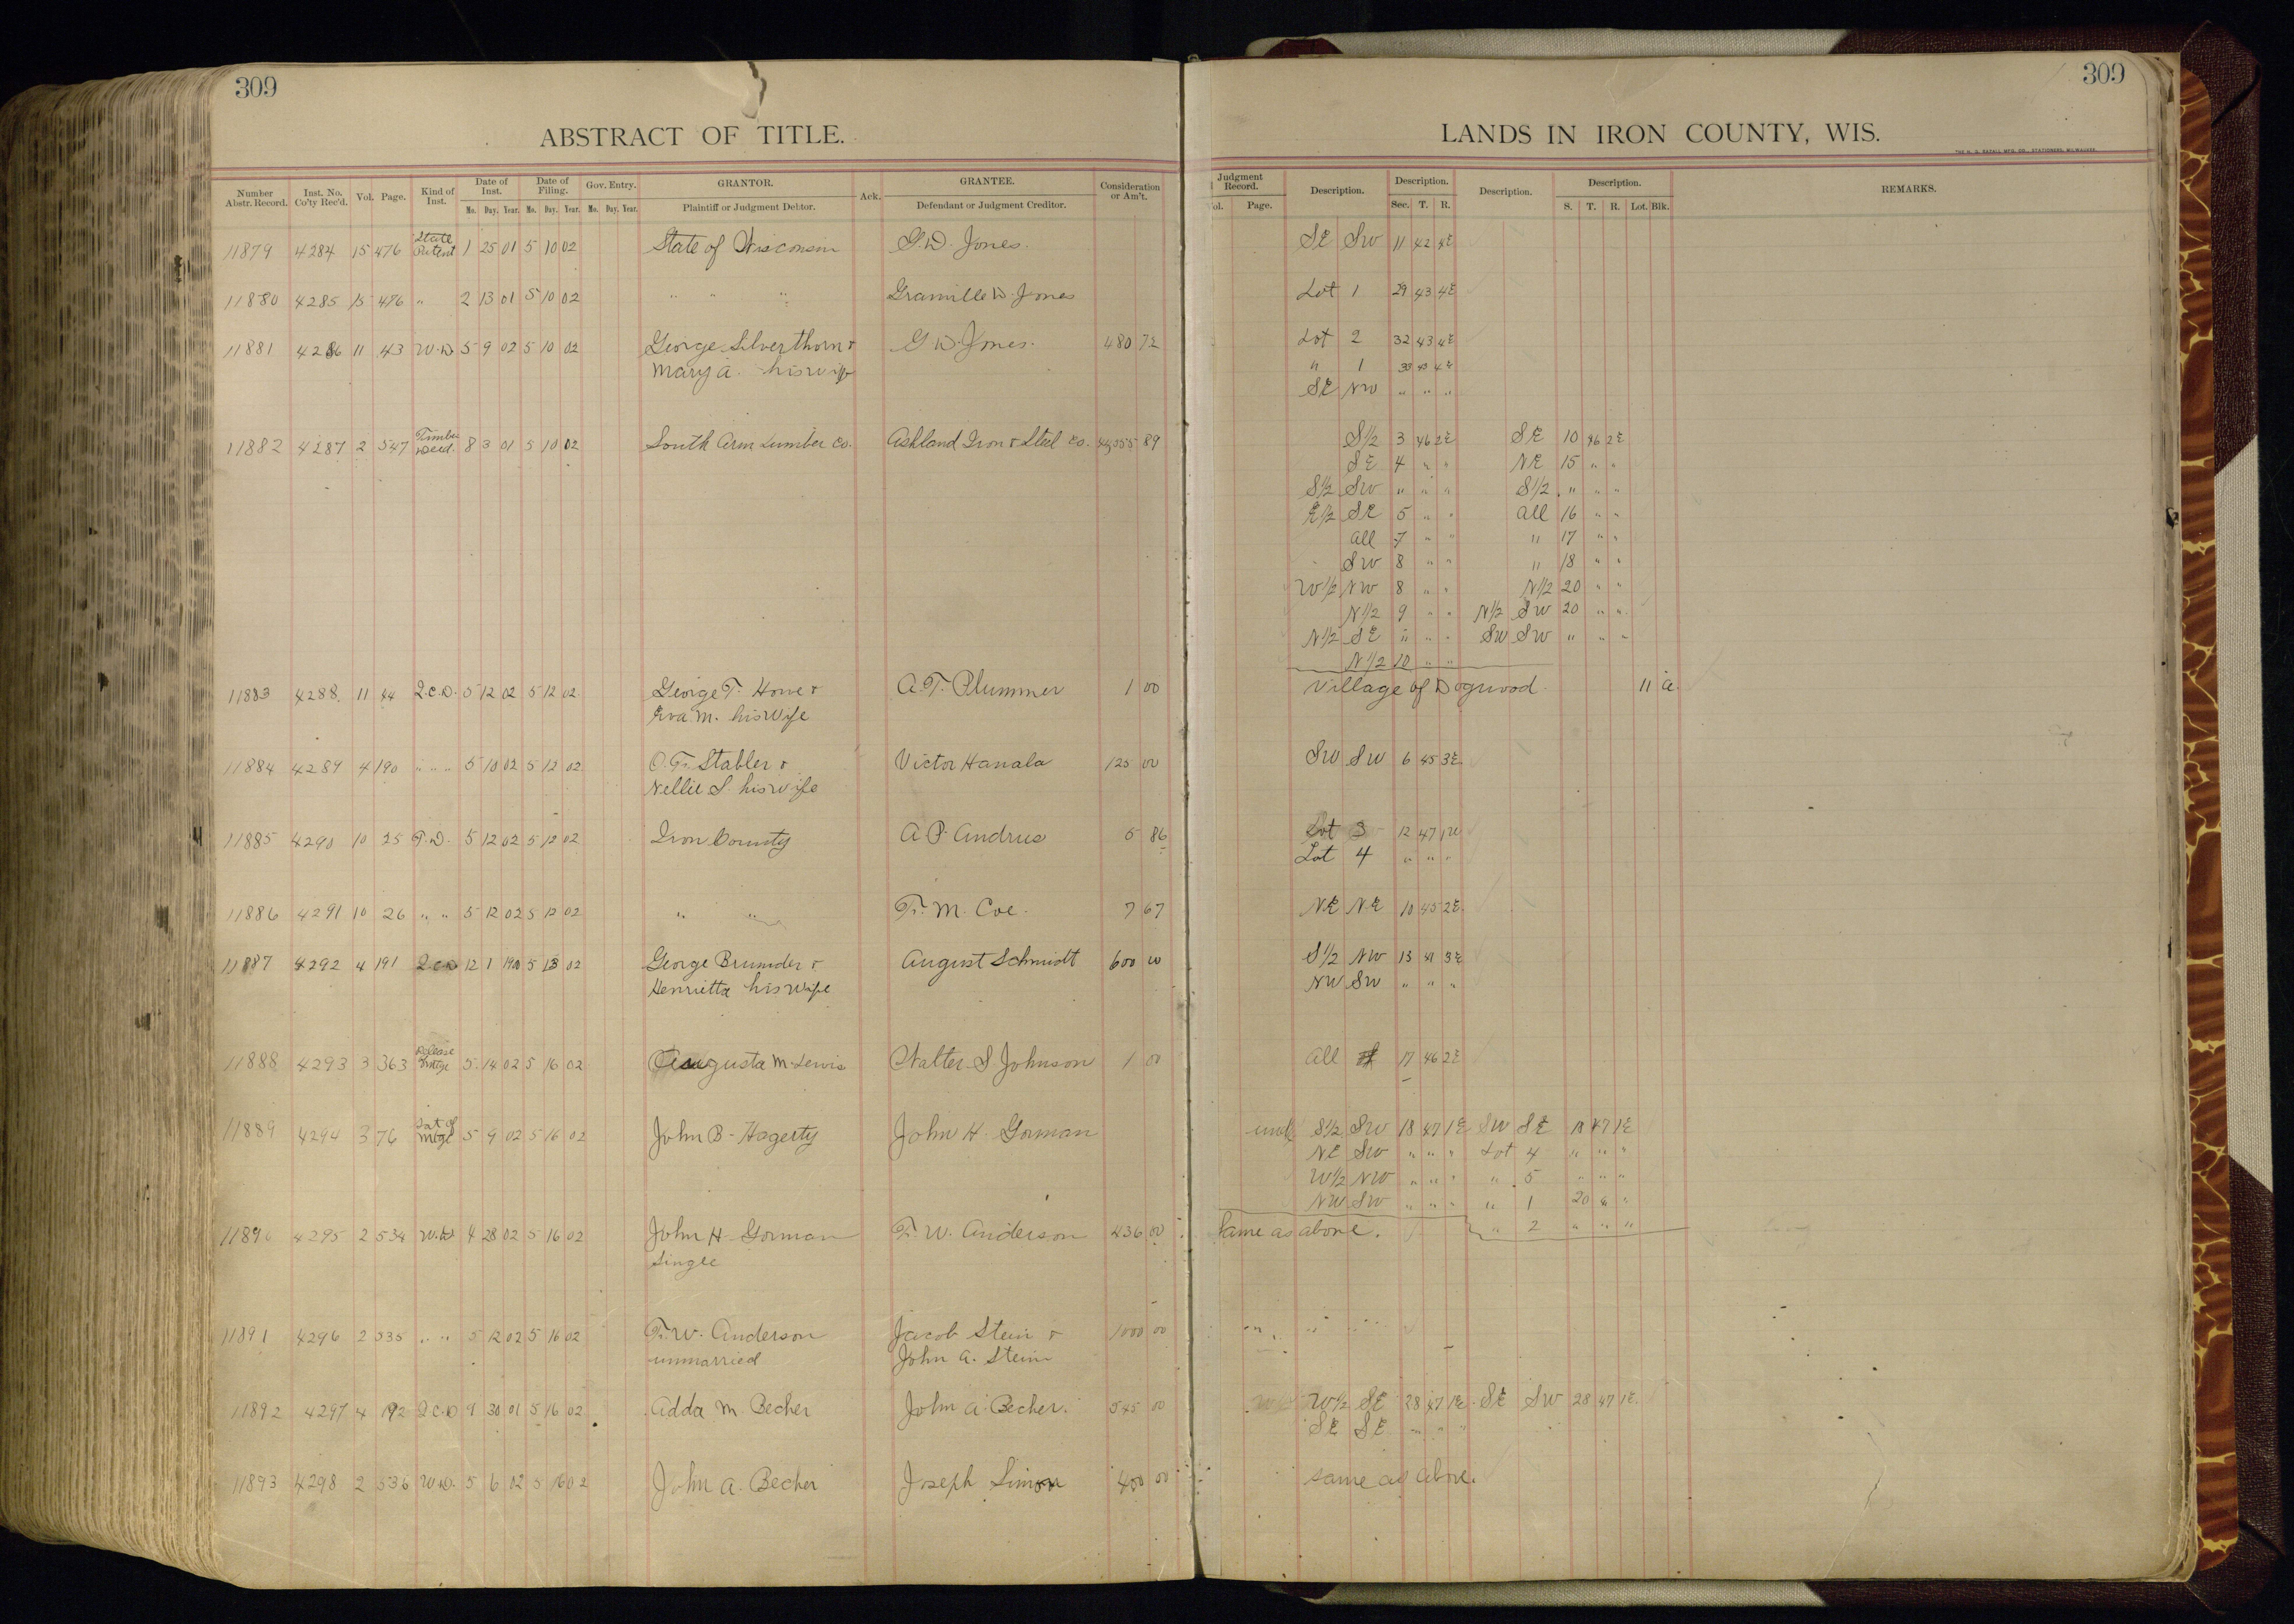 309
309
ABSTRACT OF TITLE.
LANDS IN IRON COUNTY, WIS.
Number Abstr. Record. Inst. No. Co'ty Rec'd. Vol. Page. Kind of Inst. Date of Inst. Mo. Day. Year. Date of Filing. Mo. Day. Year. Gov. Entry. Mo. Day. Year. GRANTOR. Plaintiff or Judgment Debtor. Ack. GRANTEE. Defendant or Judgment Creditor. Consideration or Am't. Judgment Record. Vol. Page. Description. Description. Sec. T. R. Description. Description. S. T. R. Lot. Blk. REMARKS.
11879 4284 15 476 State Patent 1 25 01 5 10 02 State of Wisconsin G. W. Jones. SE SW 11 42 4E
11880 4285 15 476 " 2 13 01 5 10 02 " " " Granville W. Jones Lot 1 29 43 4E
11881 4286 11 43 W.D. 5 9 02 5 10 02 George Silverthorn & G W. Jones. 480 72 Lot 2 32 43 4E
Mary A. his wife " 1 33 43 4E
SE NW " " "
11882 4287 2 547 Timber Deed. 8 3 01 5 10 02 South Arm Lumber Co. Ashland Iron & Steel Co. 44,355 89 S1/2 3 46 2E SE 10 46 2E
SE 4 " " NE 15 " "
S1/2 SW " " " S1/2 " " "
E1/2 SE 5 " " all 16 " "
all 7 " " " 17 " "
SW 8 " " " 18 " "
W1/2 NW 8 " " N1/2 20 " "
N1/2 9 " " N1/2 SW 20 " "
N1/2 SE " " " SW SW " " "
N1/2 10 " "
11883 4288 11 44 Q.C.D. 5 12 02 5 12 02 George T. Howe & A. T. Plummer 1 00 Village of Dogwood 11 a.
Eva M. his wife
11884 4289 4 190 " " " 5 10 02 5 12 02 O. F. Stabler & Victor Hanala 125 00 SW SW 6 45 3E
Nellie S. his wife
11885 4290 10 25 T.D. 5 12 02 5 12 02 Iron County A P. Andrus 5 86 Lot 3 12 47 1W
Lot 4 " " "
11886 4291 10 26 " " 5 12 02 5 12 02 " " F. M. Coe. 7 67 NE NE 10 45 2E
11887 4292 4 191 Q.C.D 12 1 1900 5 13 02 George Brumder & August Schmidt 600 00 S1/2 NW 13 41 3E
Henrietta his wife NW SW " " "
11888 4293 3 363 Release Mtge 5 14 02 5 16 02 Augusta M. Lewis Walter S Johnson 1 00 All 17 46 2E
11889 4294 3 76 Sat of Mtge 5 9 02 5 16 02 John B. Hagerty John H. Gorman S1/2 SW 18 47 1E SW SE 18 47 1E
NE SW " " " Lot 4 " " "
W1/2 NW " " " " 5 " " "
NW SW " " " " 1 20 " "
11890 4295 2 534 W.D 4 28 02 5 16 02 John H. Gorman F. W. Anderson 436 00 Same as above. " 2 " " "
Single
11891 4296 2 535 " " 5 12 02 5 16 02 F. W. Anderson Jacob Stein & 1000 00 " " " "
unmarried John A. Stein
11892 4297 4 192 Q.C.D 9 30 01 5 16 02 Adda M. Becher John A. Becher. 545 00 W1/2 SE 28 47 1E SE SW 28 47 1E
SE SE " " "
11893 4298 2 536 W.D. 5 6 02 5 16 02 John A. Becher Joseph Simon 400 00 Same as above.